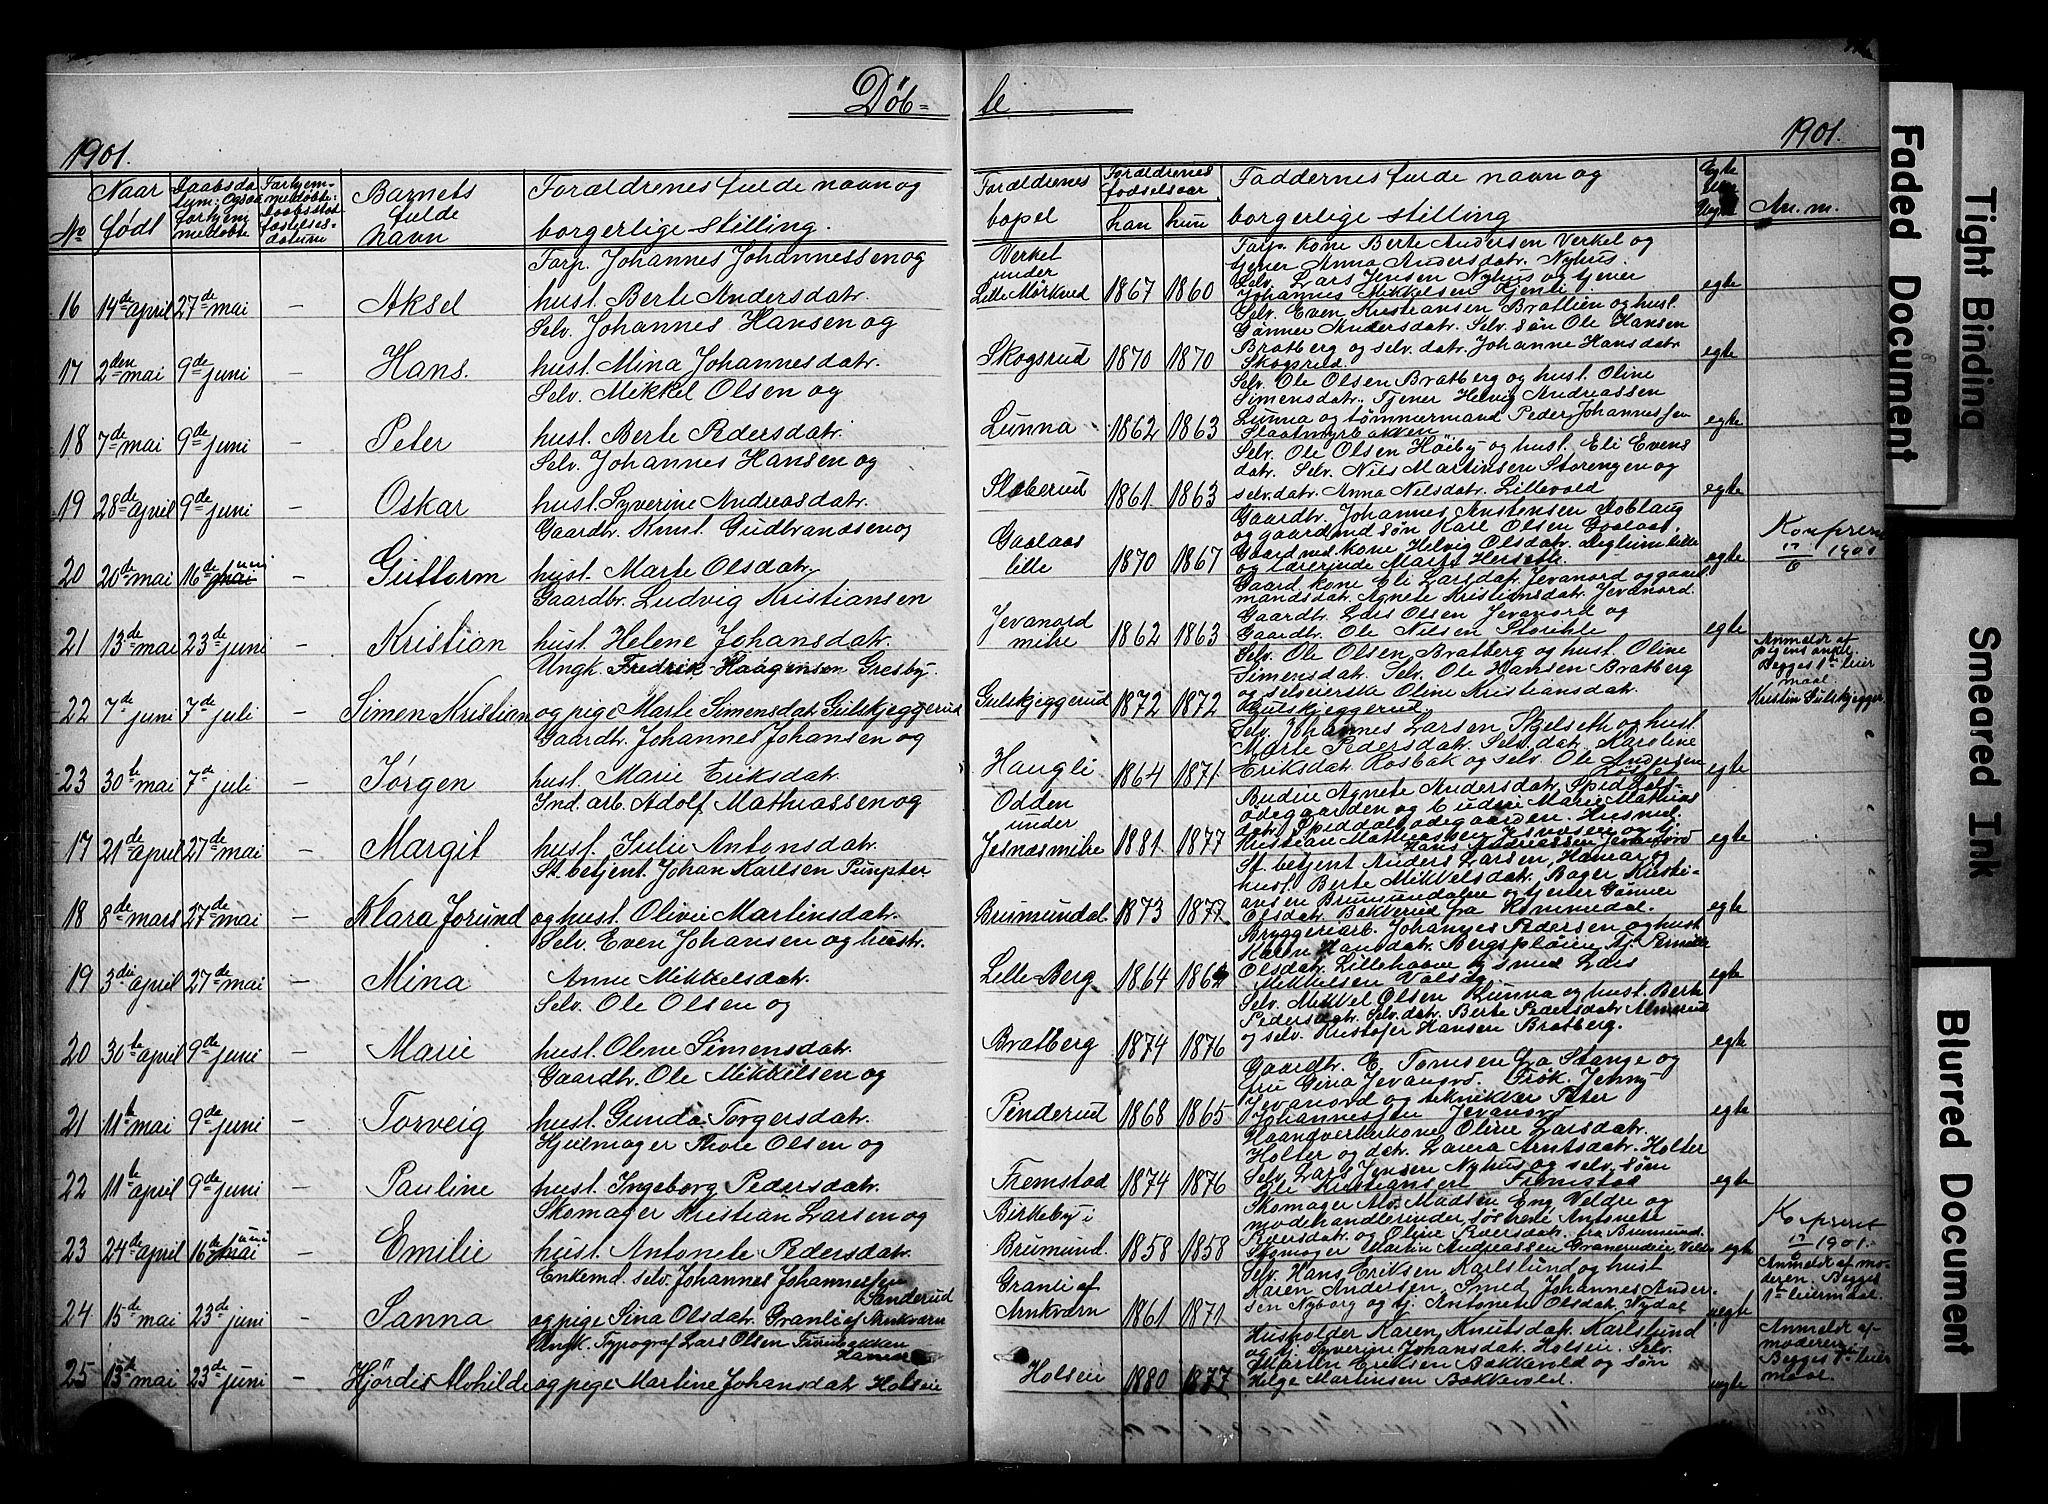 Døb-
te
1901.
1901.
No
Naar født
Barnets fulde navn
Forældrenes fulde navn og borgerlige stilling.
Forældrenes bopel
Forældrenes fødselsaar
han hun
Faddernes fulde navn og borgerlige stilling
Egte
An. m.
Forp. Johannes Johannessen og
16 14de april 27de mai — Aksel hust. Berte Andersdatr.
Selv. Johannes Hansen og
17 2den mai 9de juni — Hans. hust. Mina Johannesdatr.
Selv. Mikkel Olsen og
18 7de mai 9de juni — Peter hust. Berte Pedersdatr.
Selv. Johannes Hansen og
19 28de april 9de juni — Oskar hust. Syverine Andreasdatr.
Gaardbr. Knut Gudbrandsen og
20 20de mai 16de juni mai — Guttorm hust. Marte Olsdatr.
Gaardbr. Ludvig Kristiansen
21 13de mai 23de juni — Kristian hust. Helene Johansdatr.
Ungk. Fredrik Haagensen Gresby
22 7de juni 7de juli — Simen Kristian og pige Marte Simensdatr. Gulskjeggerud
Gaardbr. Johannes Johansen og
23 30te mai 7de juli — Jørgen hust. Marie Eriksdatr.
Ind. arb. Adolf Mathiassen og
17 21de april 27de mai — Margit hust. Julie Antonsdatr.
St. betjent Johan Karlsen
18 8de mars 27de mai — Klara Jorund og hust. Olivie Martinsdatr.
Selv. Even Johansen og hustr.
19 3die april 27de mai — Mina Anne Mikkelsdatr.
Selv. Ole Olsen og
20 30te april 9de juni — Marie hust. Oline Simensdatr.
Gaardbr. Ole Mikkelsen og
21 11te mai 9de juni — Torveig hust. Gunda Torgersdatr.
Hjulmager Thole Olsen og
22 11te april 9de juni — Pauline hust. Ingeborg Pedersdatr.
Skomager Kristian Larsen og
23 24de april 16de juni mai — Emilie hust. Antonete Pedersdatr.
Enkemd. selv. Johannes Johannessen Sanderud
24 15de mai 23de juni — Sanna og pige Sina Olsdatr. Granli af Arnkværn
Ungk. Typograf Lars Olsen Hamar
25 13de mai 23de juni — Hjørdis Alvhilde og pige Martine Johansdatr. Holsen
Verkel under Lille Mørkved 1867 1860
Forp. kone Berte Andersen Verkel og
tjener Anna Andersdatr. Nyhus.
Selv. Lars Jensen Nyhus og tjener
Johannes Mikkelsen
egte
Selv. Even Kristiansen Bratlien og hust.
Gønner Andersdatr. Selv. søn Ole Hansen
Skogsrud 1870 1870 Bratberg og selv. datr. Johanne Hansdatr.
Skogsrud.
egte
Selv. Ole Olsen Bratberg og hust. Oline
Simensdatr. Tjener Helvig Andreassen
Lunna 1862 1863 Lunna og tømmermand Peder Johannessen
egte
Selv. Ole Olsen Høiby og hust. Eli Evens
datr. Selv. Nils Martinsen Storengen og
Slaberud 1861 1863 selv. datr. Anna Nilsdatr. Lillevold
egte
Gaardbr. Johannes
og gaardmd. søn Karl Olsen Gaalaas.
Gaalaas lille 1870 1867 Gaardmd. kone Helvig Olsdatr. lille
og lærerinde Marta
egte
1901
Gaard. kone Eli Larsdatr. Jevanord og gaard
mandsdatr. Agnete Kristiansdatr. Jevanord.
Gaardbr. Lars Olsen Jevanord og
Jevanord mitre 1862 1863 Gaardbr. Ole Nilsen
egte
Selv. Ole Olsen Bratberg og hust. Oline
Simensdatr. Selv. Ole Hansen Bratberg
Gulskjeggerud 1872 1872 og selveierske Oline Kristiansdatr.
Gulskjeggerud
Anmeldt af
Begges 1ste leier
maal.
Kristin Gulskjegger
Selv. Johannes Larsen Skelseth og hust.
Marte Pedersdatr. Selv. datr. Karoline
Haugli 1864 1871 Eriksdatr. Rosbak og selv. Ole Andersen
egte
Odden under Jesnæs mitre 1881 1877
Budeie Agnete Andersdatr.
egte
St. betjent Anders Larsen, Hamar og
hust. Berte Mikkelsdatr. Bager Kristi-
Brumundal 1873 1877 ansen Brumundalen og tjener Gønner
Olsdatr. Bakkerud fra
egte
Bryggeriarb. Johannes Pedersen og hust.
Karen Hansdatr.
Lille Berg 1864 Olsdatr. Lillehaave og smed Lars
Mikkelsen
egte
Selv. Mikkel Olsen Lunna og hust. Berte
Pedersdatr. Selv. datr. Berte Pedersdatr. Almerud
Bratberg 1874 1876 og selv. Kristofer Hansen Bratberg.
egte
Gaardbr. E. Tomsen fra Stange og
fru Gina Jevanord. Frøk. Jenny
Pinderud 1868 1865 Jevanord og tekniker Peter
Johannessen Jevanord
egte
Haandverkerkone Oline Larsdatr.
Holter og datr. Laura Arntsdatr. Holter
Fremstad 1874 1876 Selv. Lars Jensen Nyhus og selv. søn
Ole Kristiansen Fremstad
egte
Skomager Madsen Eng Veldre og
modehandlerinder søstrene Antonete
Birkeby i Brumund. 1858 1858 Pedersdatr. og Oline Pedersdatr. fra Brumund.
Skomager Martin Andreassen
egte
1901.
Selv. Hans Eriksen Karlslund og hust
Karen Andersen, Smed Johannes Ander-
Granli af Arnkværn 1861 1871 sen Nyborg og tj. Antonete Olsdatr. Nydal
uegte
Anmeldt af mo-
deren. Begges
1ste leiermaal.
Husholder Karen Knutsdatr. Karlslund
og tj. Syverine Johansdatr. Holsen. Selv.
Holsen 1880 1877 Martin Eriksen Bakkevold og søn
Helge Martinsen Bakkevold.
uegte
Anmeldt af
moderen
Begges 1ste leier
maal.
Faded Document
Tight Binding
Smeared Ink
Blurred Document